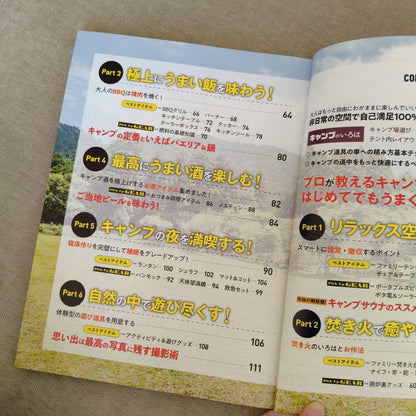 Part 3
極上にうまい飯を味わう!
大人のBBQは塊肉を焼く! 64
ベストアイテム BBQグリル・66 バーナー・68
キッチンテーブル・72 グッカー・74
クーラーボックス・76 キッチンツール・78
Pick Up GEAR 燃料の基礎知識・70
キャンプの定番といえばパエリア&鍋 80
Part 4
最高にうまい酒を楽しむ! 82
キャンプ酒を格上げするお酒アイテム集めました!
Pick Up GEAR おつまみ調理アイテム・86 メスティン・88
ご当地ビールを味わう! 84
Part 5
キャンプの夜を満喫する! 90
寝床作りを完璧にして睡眠をグレードアップ!
ベストアイテム ランタン・100 シュラフ・102 マット&コット・104
Pick Up GEAR ハンモック・92 天体望遠鏡・94 救急セット・99
Part 6
自然の中で遊び尽くす! 106
体験型の遊び道具を用意する
ベストアイテム アクティビティ&遊びグッズ・108
思い出は最高の写真に残す撮影術 111
CON
大人はもっと自由にわがままに楽しんでい
非日常の空間で自己満足100%
キャンプのいろは
キャンプ場選び
テント内レイアウ
キャンプ道具の車への積み方基本テク
キャンプの道中をもっと快適にする
プロが教えるキャン
はじめてでもうまく
Part 1
リラックス空
スマートに設営・撤収するポイント
ベストアイテム ファミリーテン
チェア&テー
Pick Up GEAR ポータブルスピ
ポタ電&ソーラ
キャンプサウナのススメ
Part 2
焚き火で癒や
焚き火のいろはとお作法
ベストアイテム ファミリー焚き火
ナイフ・斧・鉈
Pick Up GEAR 囲炉裏グッズ・60